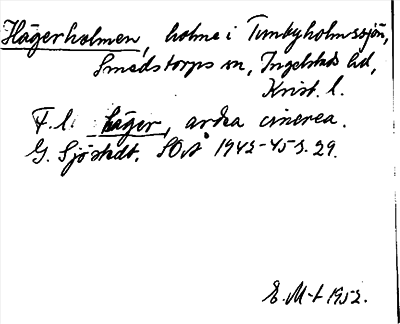 Hägerholmen, holme i Tunbyholmssjön,
Smedstorps sn, Ingelstads hd,
Krist. l.
F.l. häger, ardea cinerea.
G. Sjöstedt. SOÅ 1942-45 s. 29.
E. M-t 1952.